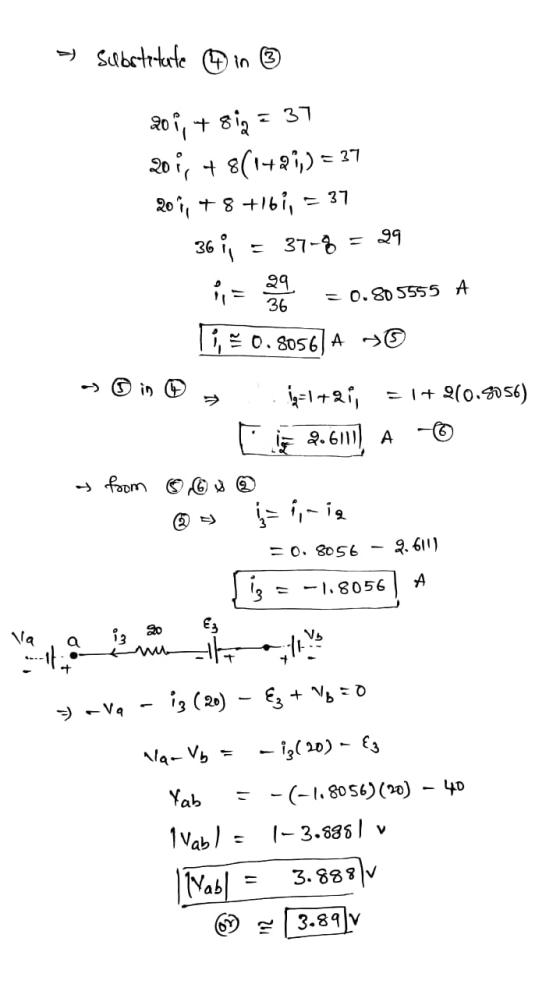 ⇒ Substitute ④ in ③
20i₁ + 8i₂ = 37
20i₁ + 8(1+2i₁) = 37
20i₁ + 8 + 16i₁ = 37
36i₁ = 37-8 = 29
i₁ = 29/36 = 0.805555 A
i₁ ≅ 0.8056 A → ⑤
→ ⑤ in ④ ⇒ i₂=1+2i₁ = 1+2(0.8056)
i₂ = 2.6111 A - ⑥
→ from ⑤,⑥ & ②
② ⇒ i₃ = i₁ - i₂
= 0.8056 - 2.6111
i₃ = -1.8056 A
Va a i₃ 20 ε₃ Vb
- + - + + -
⇒ -Va - i₃(20) - ε₃ + Vb = 0
Va-Vb = -i₃(20) - ε₃
Vab = -(-1.8056)(20) - 40
|Vab| = |-3.888| v
|Vab| = 3.888 v
(or) ≅ 3.89 v